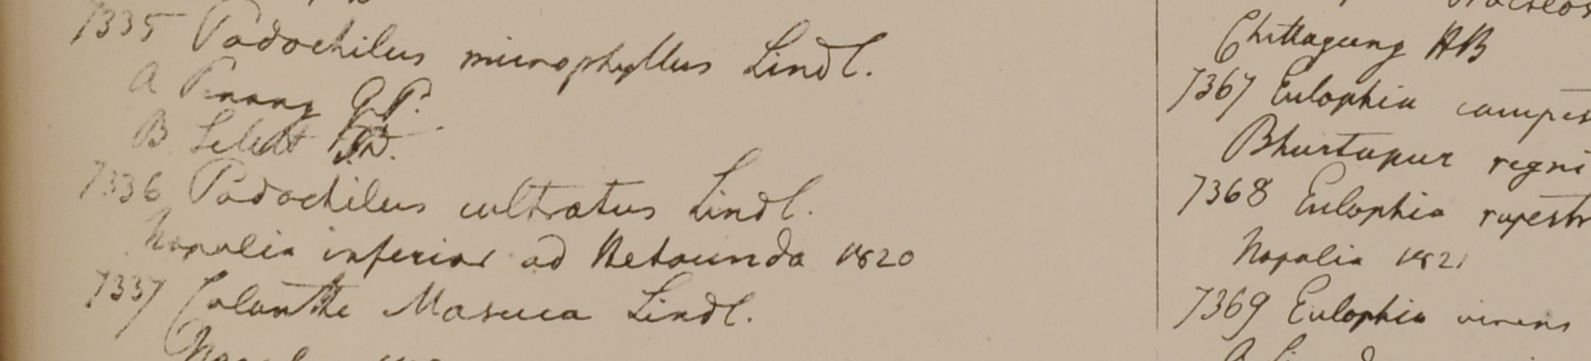 7335 Podochilus microphyllus Lindl.
A Penang G.P.
B Silhet
7336 Podochilus cultratus Lindl.
Napalia inferior ad Hetounda 1820
7337 Calanthe Masuca Lindl.
Chittagung HB
7367 Eulophia campes
Bhurtapur regni
7368 Eulophia rupestr
Napalia 1821
7369 Eulophia virens